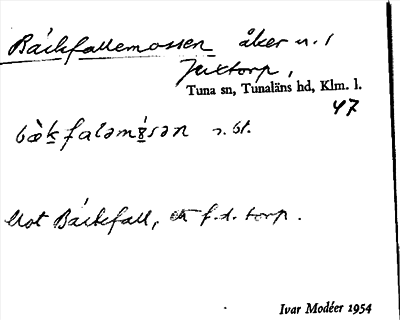 Bäckfallemossen åker n. 1
Juxtorp,
Tuna sn, Tunaläns hd, Klm. l.
47
bæ̀kfaləmósən
Mot Bäckfall, ett f.d. torp.
Ivar Modéer 1954